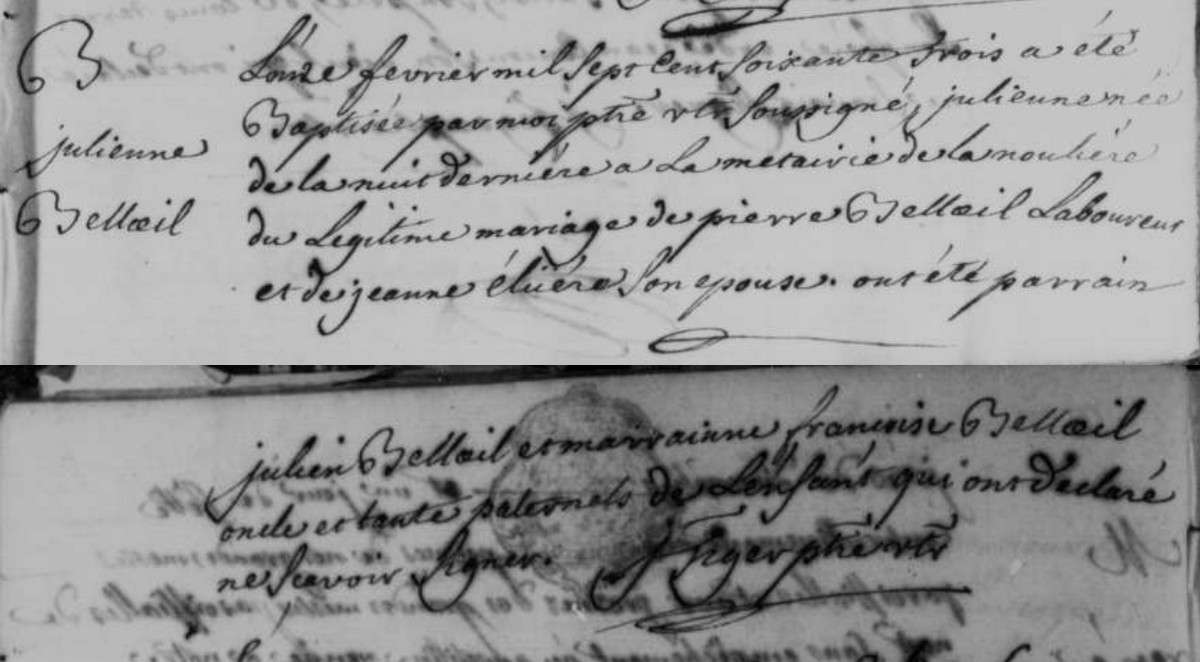 B
julienne
Bellœil
L'onze fevrier mil sept cent soixante trois a été
Baptisée par moi ptre vre soussigné, julienne née
de la nuit dernière a la metairie de la noulière
du Legitime mariage de pierre Bellœil Laboureur
et de jeanne éluére son epouse. ont été parrain
julien Bellœil et marrainne francoise Bellœil
oncle et tante paternels de L'enfant qui ont declaré
ne scavoir signer. ptre vre